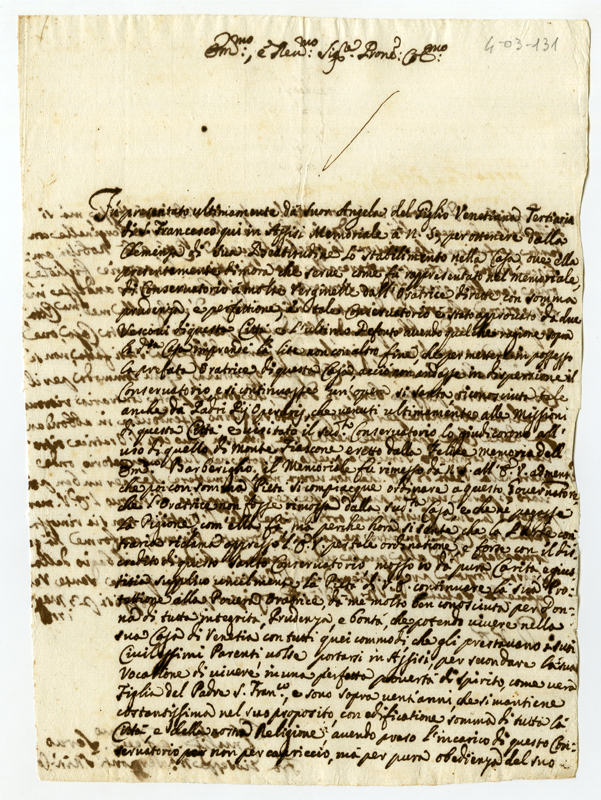 Em.mo, e Rev.mo Sig.re Pron.e Col.mo
4-03-131
Fù presentato ultimamente da Suor Angela del Giglio Venetiana Tertiaria
di S. Francesco qui in Assisi Memoriale à N. S. per ottenere dalla
Clemenza di Sua Beatitudine lo stabilimento nella Casa ove ella
presentemente dimora che serve come fù rapresentato nel memoriale,
di Conservatorio à molte Verginelle dall'Oratrice dirette con somma
prudenza, e perfettione, e tale Conservatorio è stato approvato da due
Vescovi di questa Città, e l'ultimo defonto avendo qualche ragione sopra
la d.ta Casa imprende la lite non con altro fine che per mettere in possesso
la prefata Oratrice di questa Casa acciò non andasse in dispersione il
Conservatorio e si continuasse un'opera si santa riconosciuta tale
anche da Padri che venuti ultimamente alle Missioni
di questa Città e visitato il sud.to Conservatorio lo giudicorno all'
uso di quello di Monte Fiascone eretto dalla felice memoria dell'
Em.mo Barberigho. il Memoriale fù rimesso da N. S. all'
che poi con somma Pietà si compiacque ordinare a questo Governatore
che l'Oratrice non fosse rimossa dalla sud.ta Casa e che ne pagasse
la Pigione, com'ella fà, mà perche hora si sente che la Parte con=
traria richiama appresso per tale ordinatione, e forse con il dis=
credito di questo Santo Conservatorio mosso io da pura Carità e gius=
titia supplico umilmente la continuare la sua Pro=
tettione alla Povera Oratrice da me molto ben conosciuta per Don=
na di tutta integrità, Prudenza, e bontà, che potendo vivere nella
sua Casa di Venetia con tutti quei commodi che gli prestavano i suoi
Civilissimi Parenti volse portarsi in Assisi, per secondare la sua
Vocatione di vivere in una perfetta povertà di spirito, come vera
Figlia del Padre S. Fran.co, e sono sopra vent'anni che si mantiene
costantissima nel suo proposito con edificatione somma di tutta la
Città, e della nostra Religione: avendo preso l'incarico di questo Con=
servatorio non per capriccio, mà per pura obedienza del suo